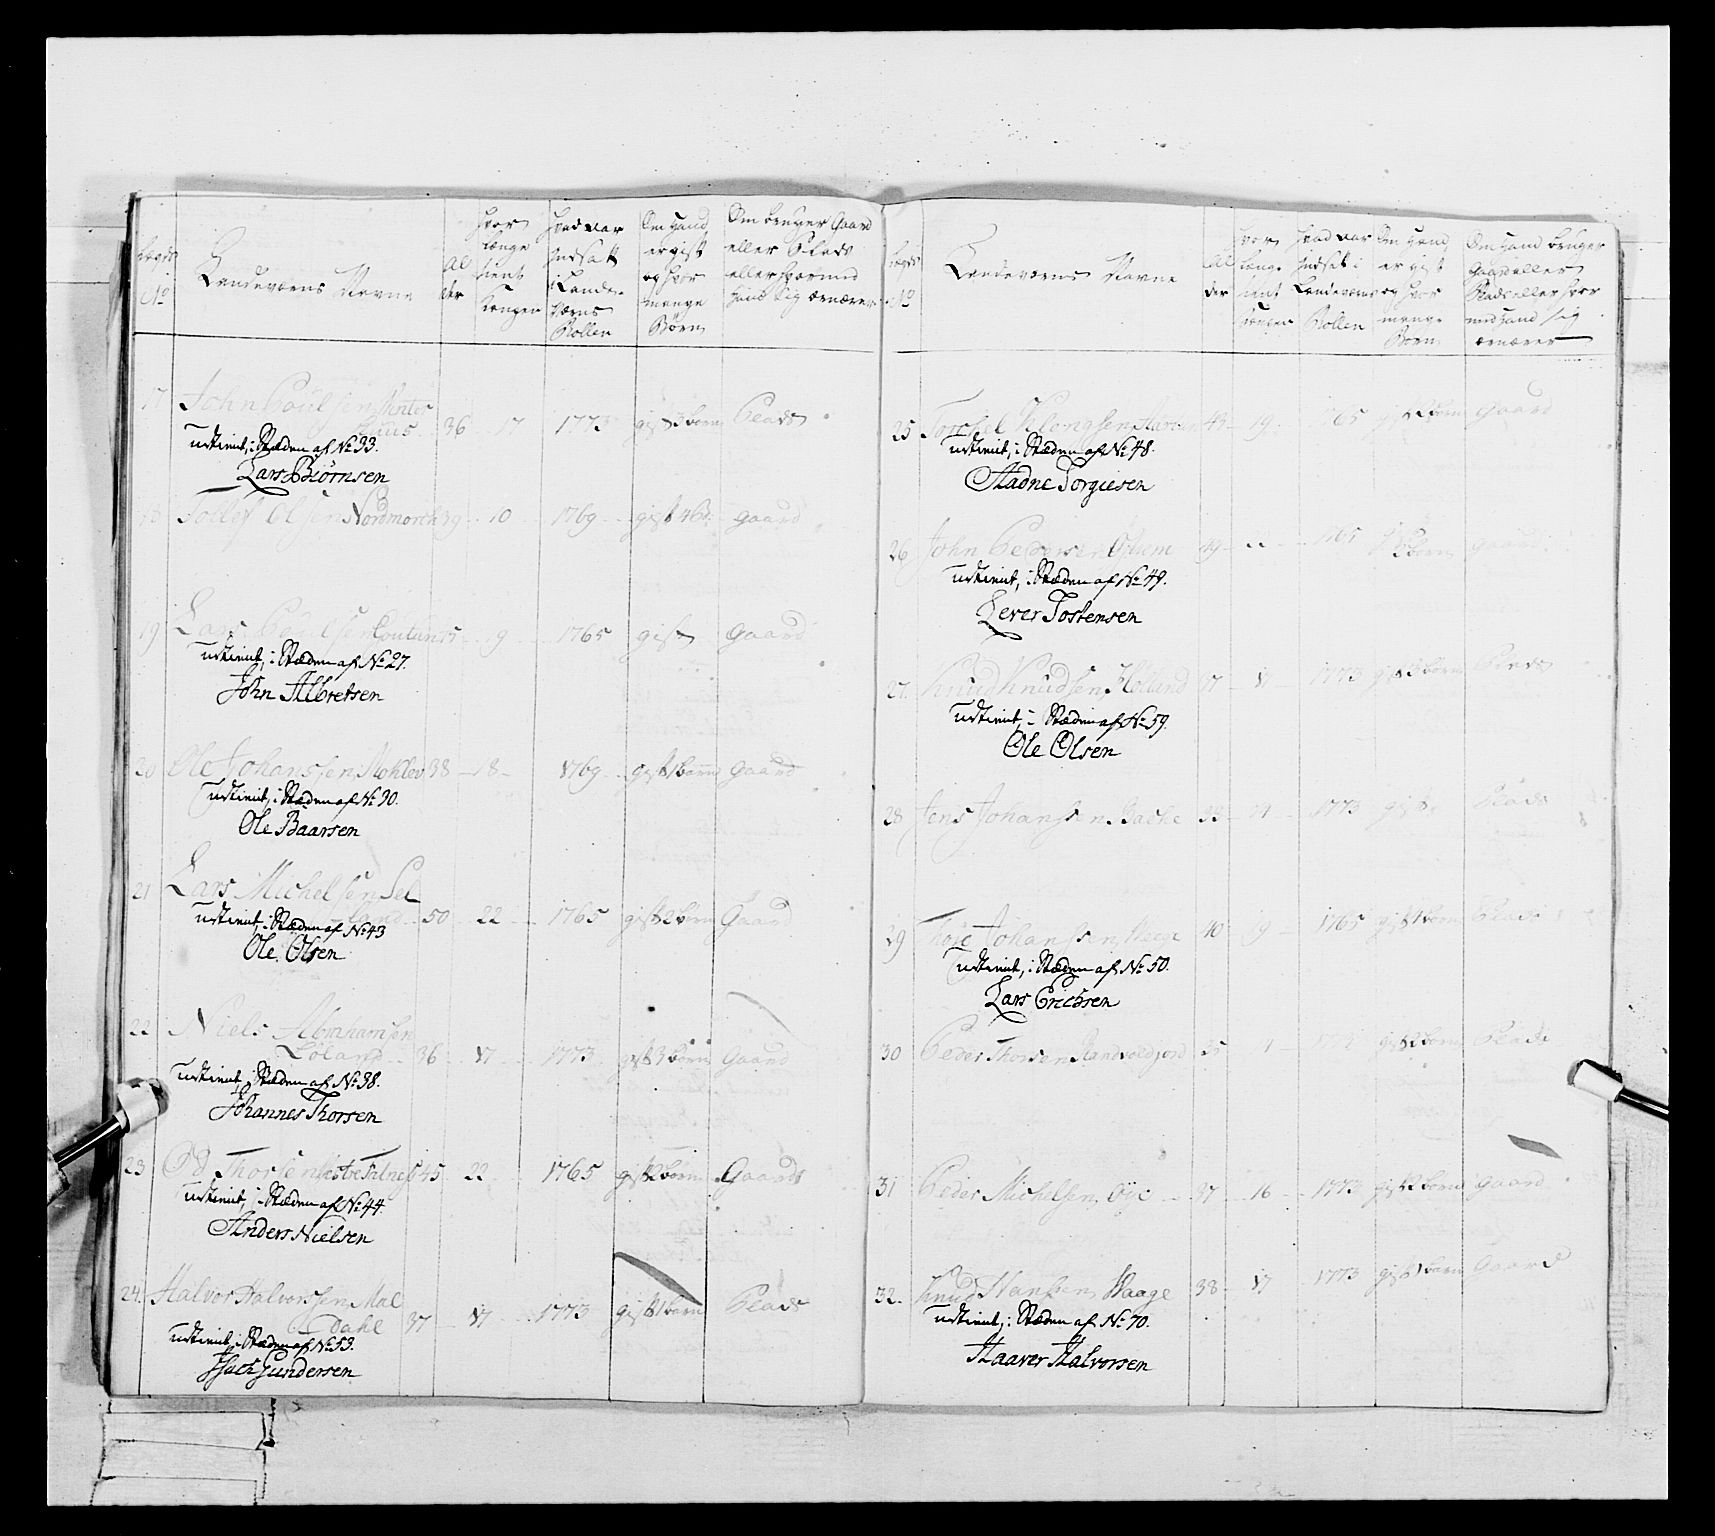 Lægds No
Landeværns Navne
Al der
hvor længe tient Kongen
hvad Aar indsatt i Lande Værns Rollen
Om hand er gift og hvor mange Børn
Om bruger Gaard eller Plads eller hvormed hand sig ernærer
17 John Poulsen 36 17 1773 gift 3 børn Plads
udtient, i Stæden af No 33.
Lars Biörnsen
18 Tollef Olsen Nordmorck 39 10 1769 gift 4 B: gaard
19 Lars Poulsen 9 1765 gift gaard
udtient, i Stæden af No 27.
John Albretsen
20 Ole Johanssen 38 18 1769 gift 1 børn gaard
udtient, i Stæden af No 30.
Ole Baarsen
21 Lars Michelsen Sel
land 50 22 1765 gift 2 børn Gaard
udtient, i Stæden af No 43
Ole Olsen
22 Niels Abrahamsen
Löland 36 17 1773 gift 3 børn Gaard
udtient, i Stæden af No 38.
Johannes Thorsen
23 Od Thorsen 45 22 1765 gift 2 børn Gaard
udtient, i Stæden af No 44.
Anders Nielsen
24. Halvor Halvorssen Mal
Dahl 37 17 1773 gift 1 børn Plads
udtient, i Stæden af No 53.
Isach Gundersen
Lægds No
Landeværns Navne
Al der
hvor længe tient Kongen
hvad Aar indsat i Landeværns Rollen
Om hand er gift og hvor mange Børn
Om hand bruger Gaard eller Plads eller hvor med hand sig ernærer
25 19 1765 gift 2 børn gaard
udtient, i Stæden af No 48.
Aadne Torgiesen
26 John Pedersen 49 22 1765 gift børn gaard
udtient, i Stæden af No 49.
Sever Tostensen
27. Knud Knudsen Hølland 37 17 1773 gift 3 børn Plads
udtient, i Stæden af No 59.
Ole Olsen
28 Jens Johansen Bakke 33 1773 gift Plads
29 Johansen 40 19 1765 gift 4 børn Plads
udtient, i Stæden af No 50.
Lars Erichsen
30 Peder Thorsen 35 1773 gift 2 børn Plads
31 Peder Michelsen Øye 37 16 1773 gift 2 børn gaard
32. Knud Hansen Haage 38 17 1773 gift 1 børn Gaard
udtient, i Stæden af No 70.
Haaver Halvorsen